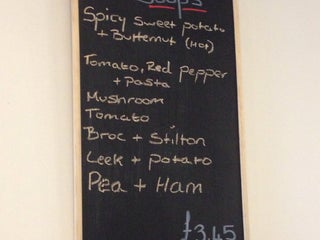 Soups
Spicy Sweet potato
+ Butternut (Hot)
Tomato, Red pepper
+ pasta
Mushroom
Tomato
Broc + Stilton
Leek + potato
Pea + Ham
£3.45